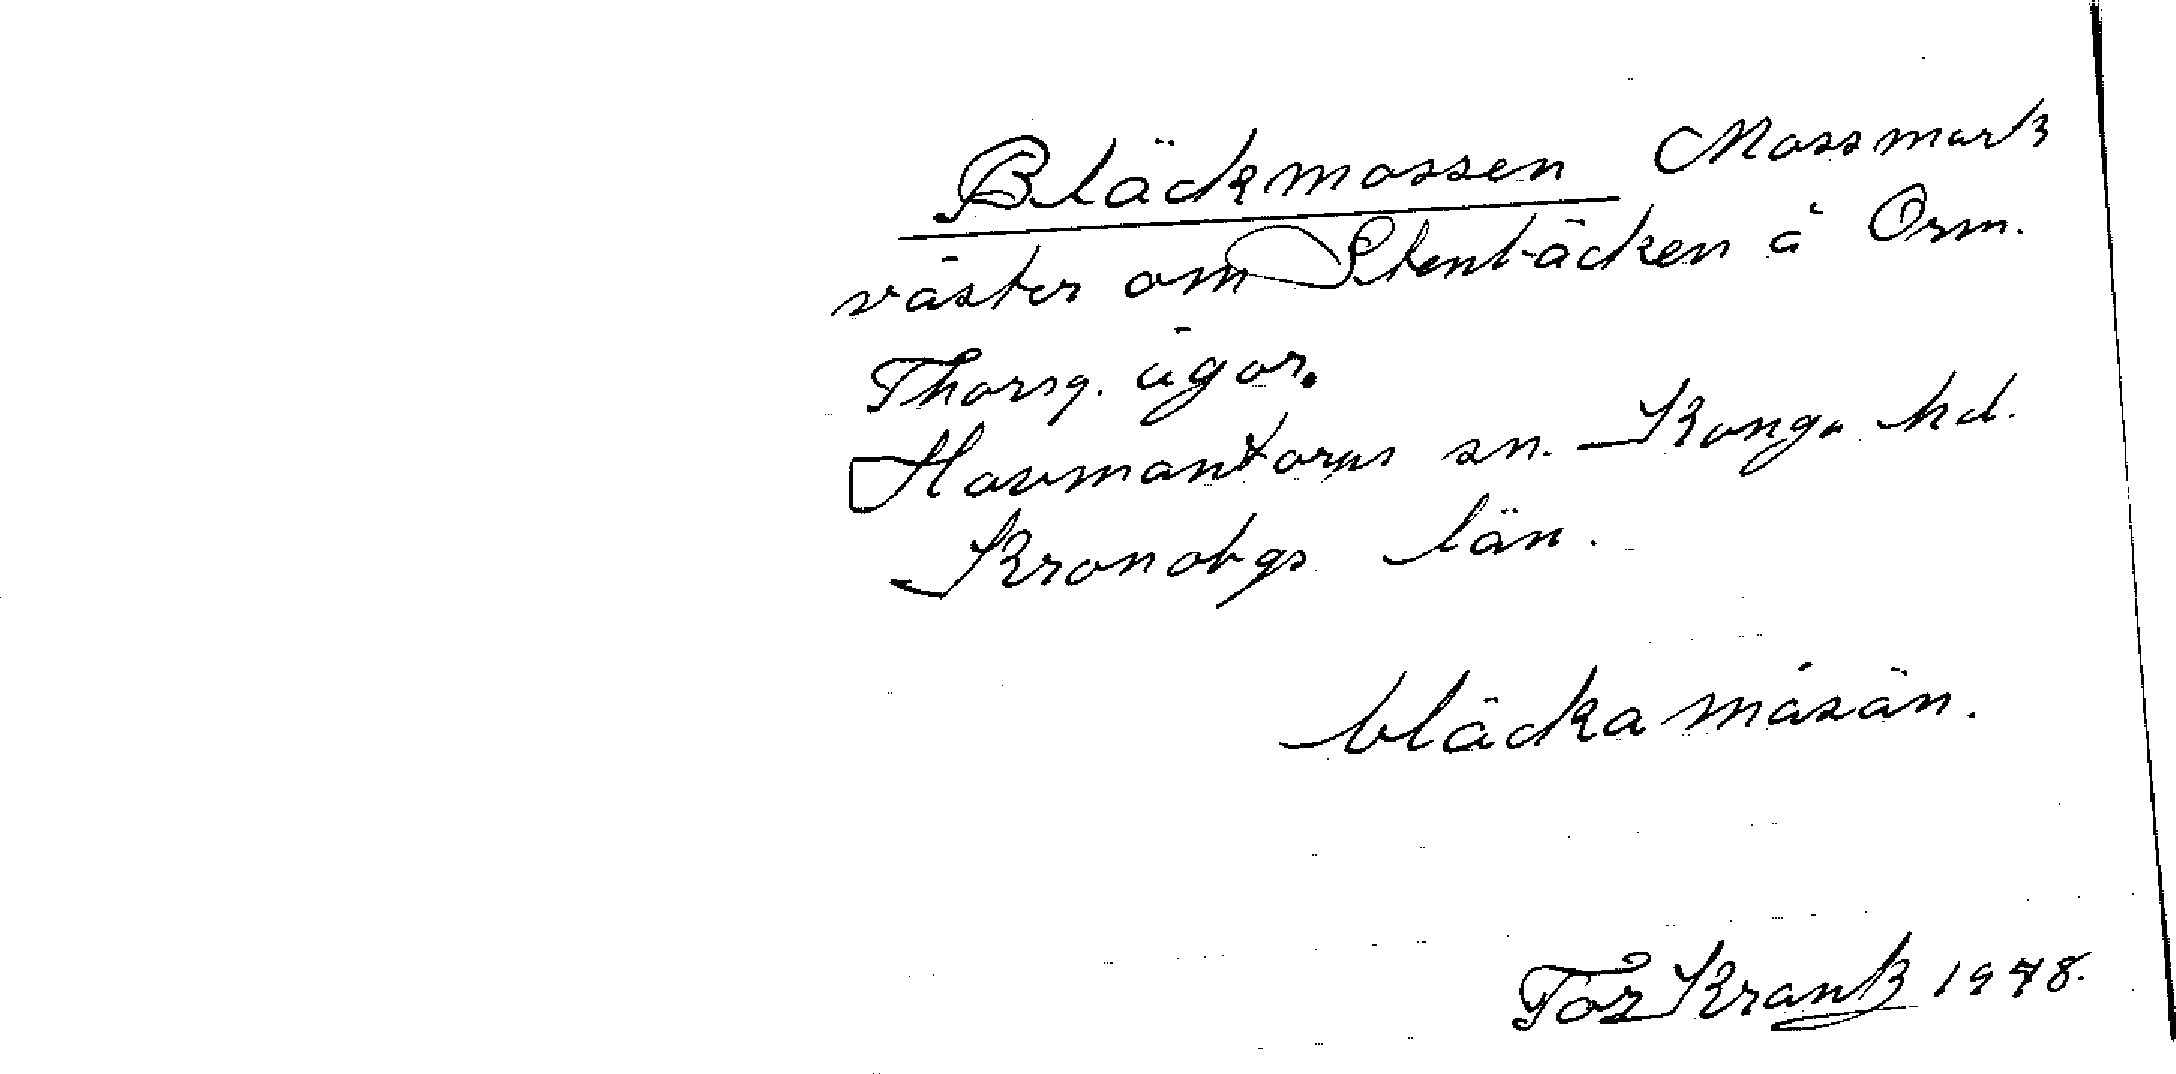 Bläckmossen Mossmark
väster om Stenbäcken å Orm.
Thorsg. ägor.
Hovmantorps sn. Konga hd.
Kronobgs län.
bläckamåsän.
Tor Krank 1948.